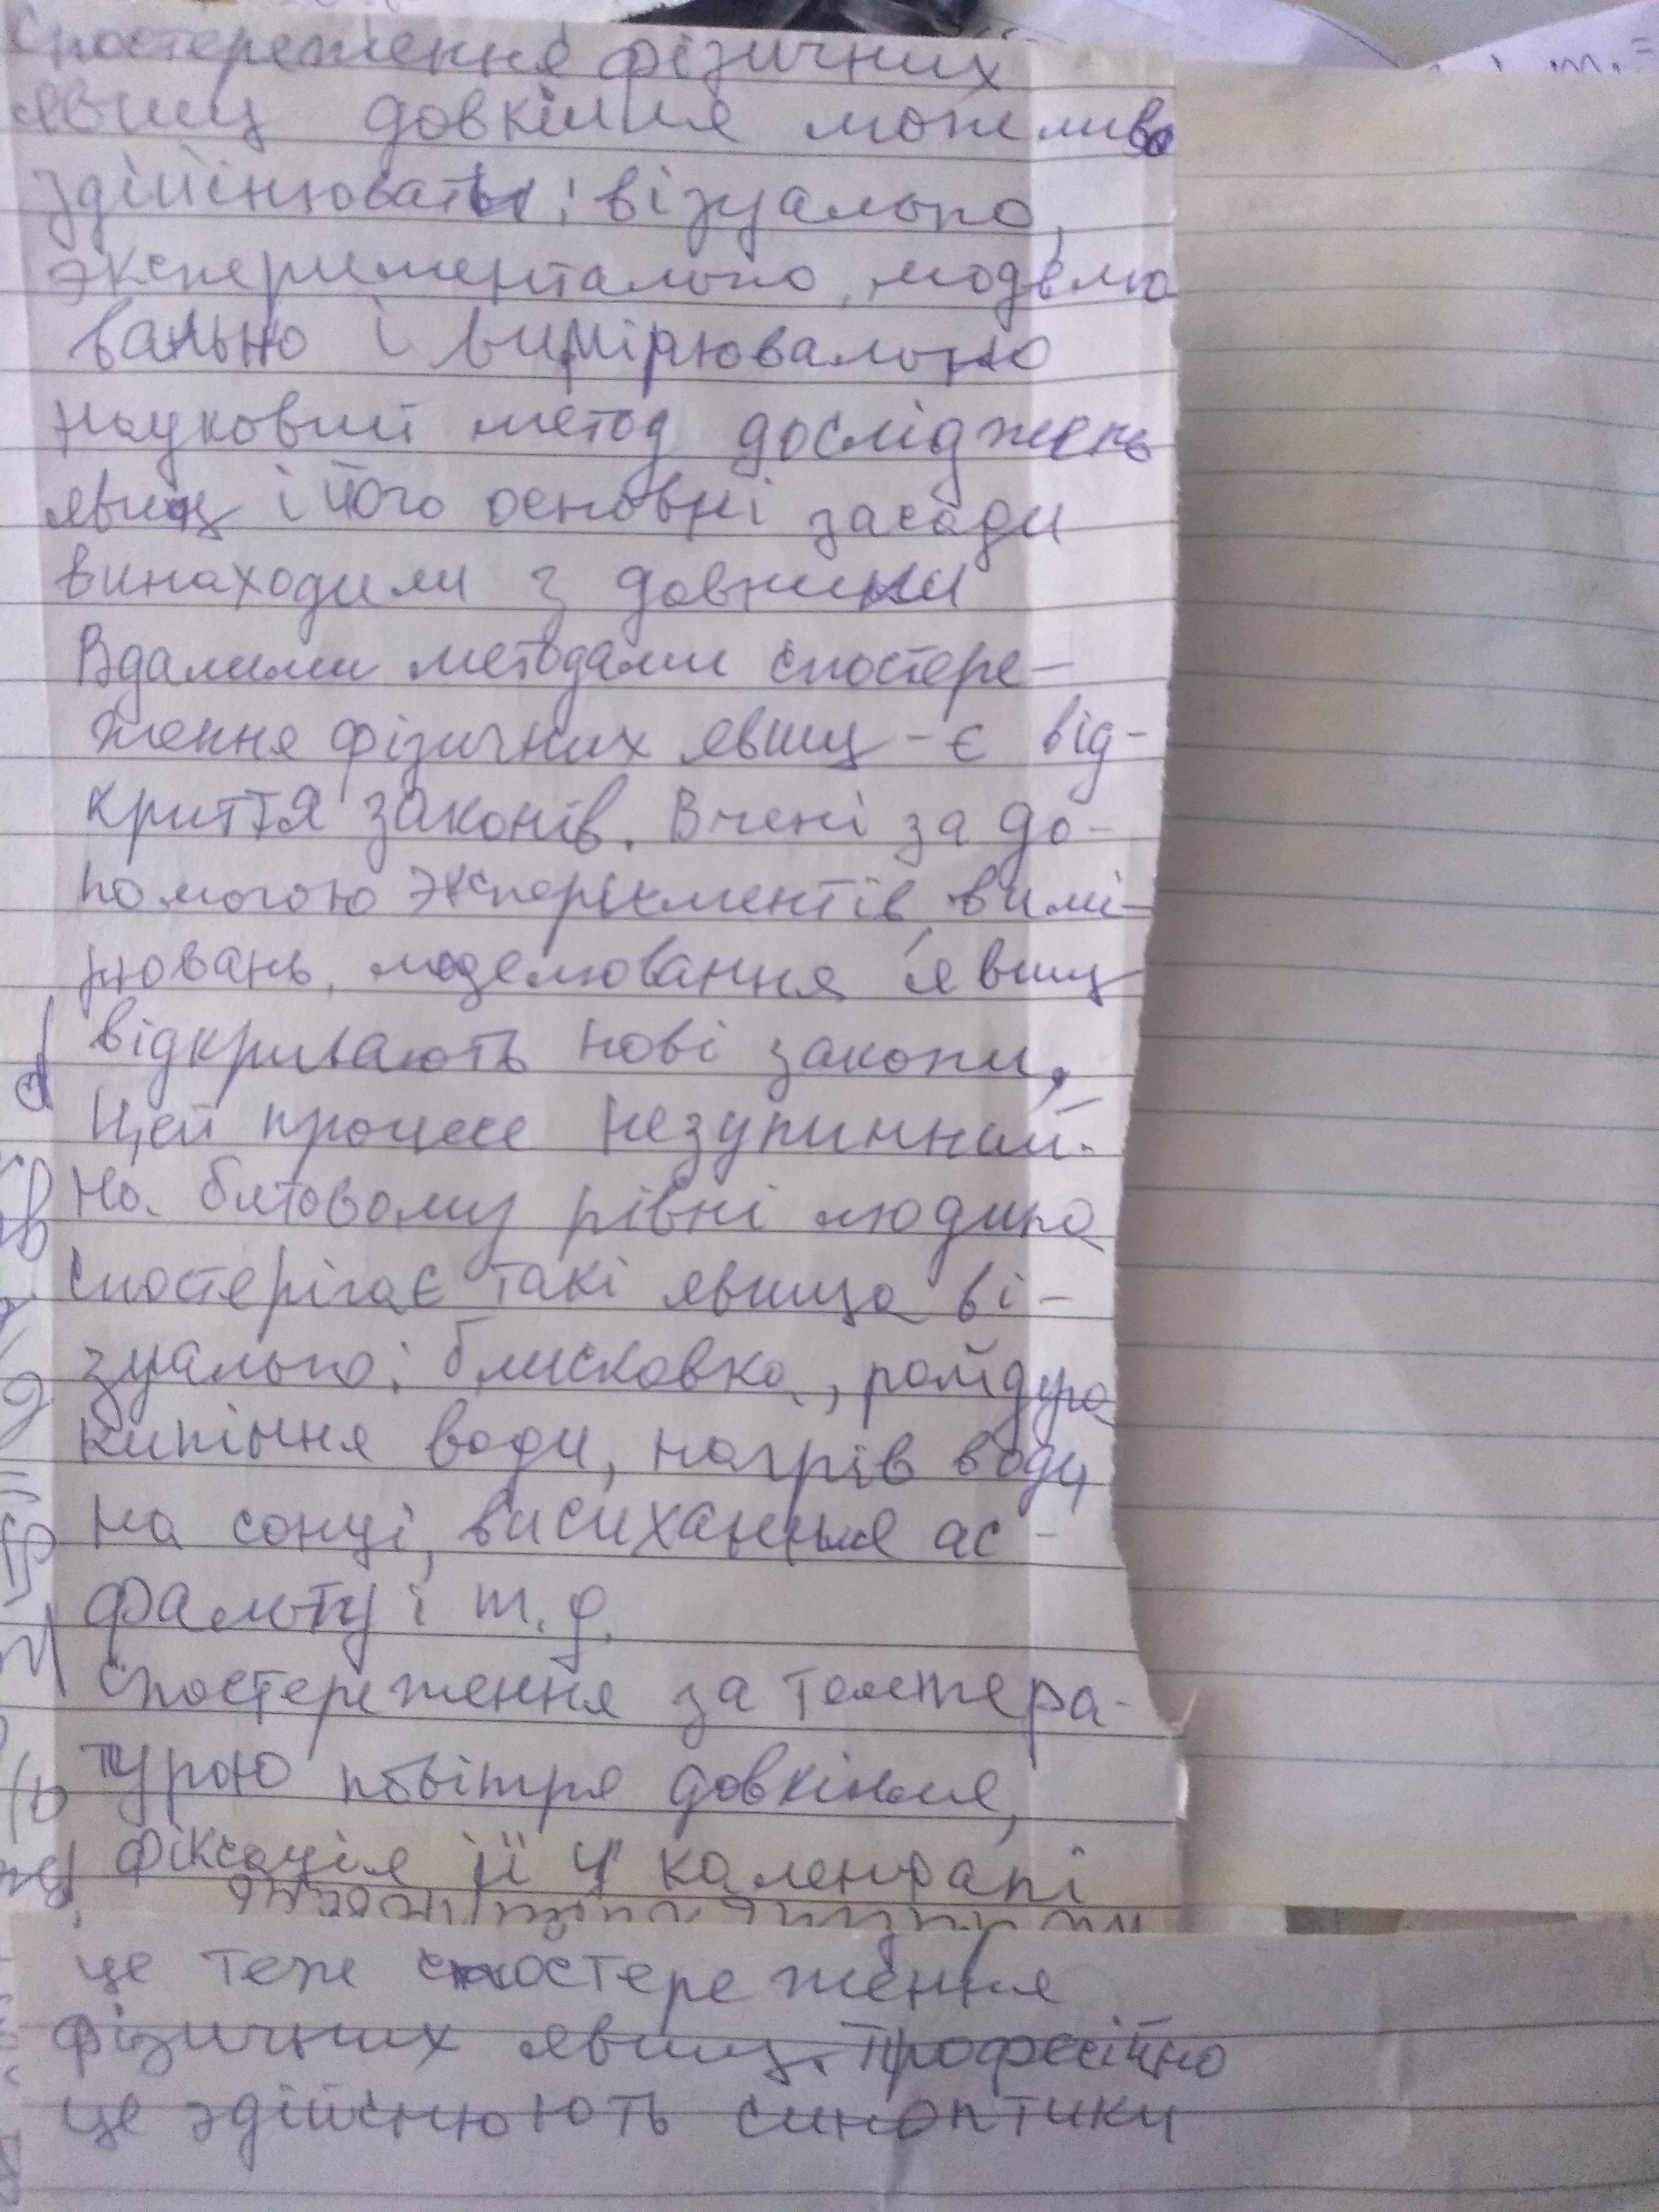 Спостереження фізичних
явищ довкілля можливо
здійснювати: візуально,
экспериментально, моделю
вально і вимірювально
Науковий метод досліджень
явищ і його основні засади
винаходили з давнини
Вдалими методами спостере-
ження фізичних явищ - є від-
криття законів. Вчені за до-
помогою экспериментів, вимі-
рювань, моделювання явищ
відкривають нові закони.
Цей процес незупинний.
На битовому рівні людина
спостерігає такі явища ві-
зуально: блискавка, райдуга
кипіння води, нагрів води
на сонці, висихання ас-
фальту і т.д.
Спостереження за темпера-
турою повітря довкілля,
фіксація її у календарі
це теж спостереження
фізичних явищ. Професійно
це здійснюють синоптики